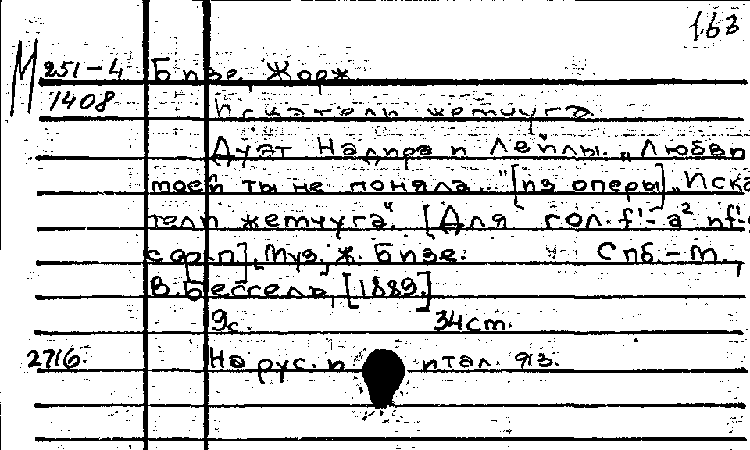 163
М 251-4 Бизе, Жорж.
1408 Искатели жемчуга.
Дуэт Надира и Лейлы. „Любви
моей ты не поняла..." [из оперы] „Иска-
тели жемчуга". [Для гол. f¹-a² и f¹-
с ф-п], Муз. Ж. Бизе. Спб.-М.,
В. Бессель, [1889.]
9с. 34cm.
2716. На рус. и итал. яз.